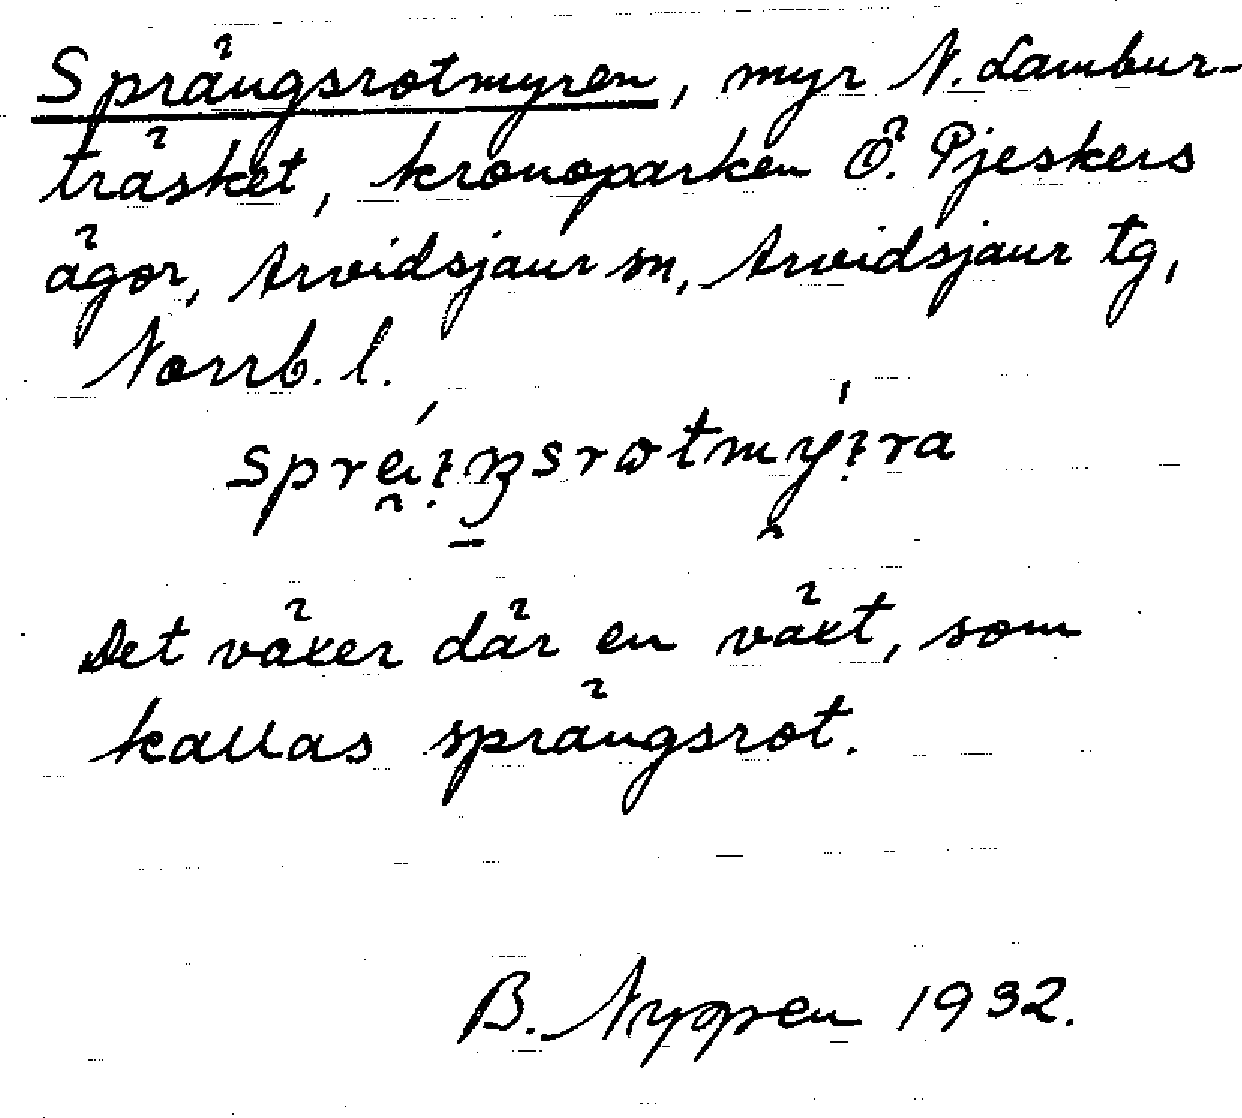 Sprängsrotmyren, myr N. Lambur-
träsket, kronoparken Ö. Pjeskers
ägor, Arvidsjaur sn, Arvidsjaur tg,
Norrb. l.
Det växer där en växt, som
kallas sprängsrot.
B. Nyppen 1932.